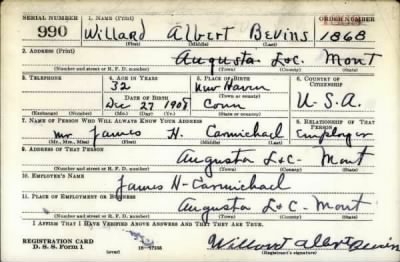 SERIAL NUMBER 1. NAME (Print) ORDER NUMBER
990 Willard Albert Bevins 1868
(First) (Middle) (Last)
2. ADDRESS (Print)
Augusta L&C. Mont
(Number and street or R. F. D. number) (Town) (County) (State)
3. TELEPHONE 4. AGE IN YEARS 5. PLACE OF BIRTH 6. COUNTRY OF CITIZENSHIP
32 New Haven
DATE OF BIRTH (Town or county)
Dec 27 1908 Conn U.S.A.
(Exchange) (Number) (Mo.) (Day) (Yr.) (State or country)
7. NAME OF PERSON WHO WILL ALWAYS KNOW YOUR ADDRESS 8. RELATIONSHIP OF THAT PERSON
Mr. James H. Carmichael Employer
(Mr., Mrs., Miss) (First) (Middle) (Last)
9. ADDRESS OF THAT PERSON
Augusta L&C- Mont
(Number and street or R. F. D. number) (Town) (County) (State)
10. EMPLOYER'S NAME
James H- Carmichael
11. PLACE OF EMPLOYMENT OR BUSINESS
Augusta L&C- Mont
(Number and street or R. F. D. number) (Town) (County) (State)
I AFFIRM THAT I HAVE VERIFIED ABOVE ANSWERS AND THAT THEY ARE TRUE.
REGISTRATION CARD
D. S. S. Form 1 (over) Willard Albert Bevins
(Registrant's signature)